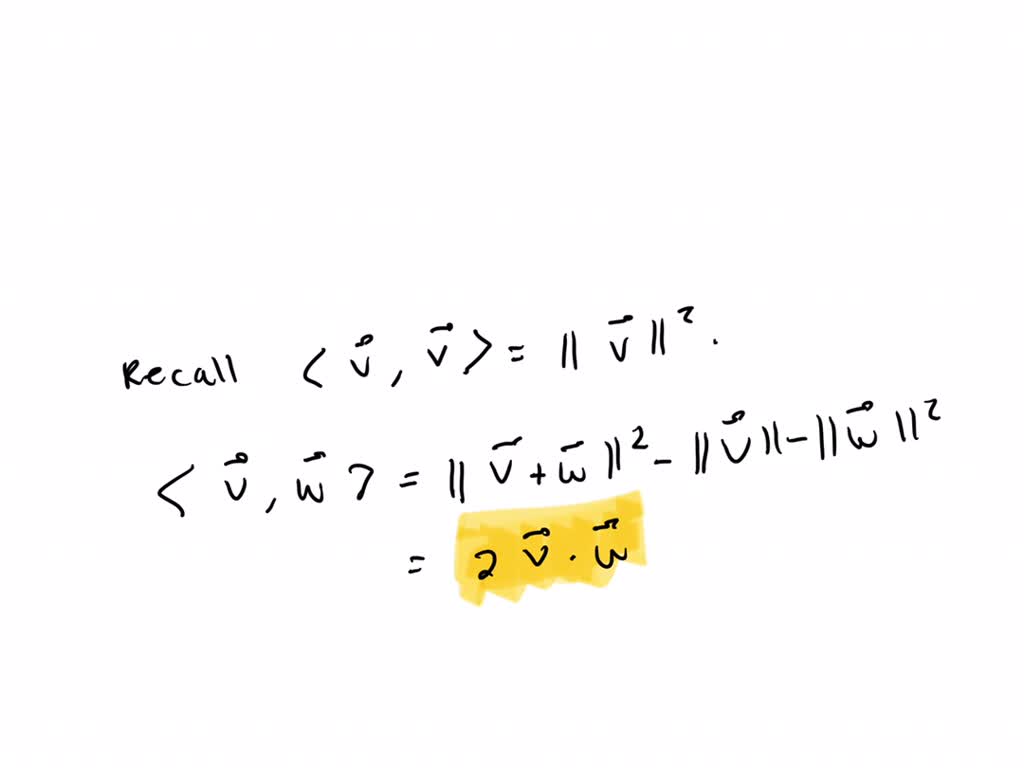 Recall < v⃗, v⃗ > = || v⃗ ||².
< v⃗, w⃗ > = || v⃗ + w⃗ ||² - || v⃗ || - || w⃗ ||²
= 2 v⃗ · w⃗